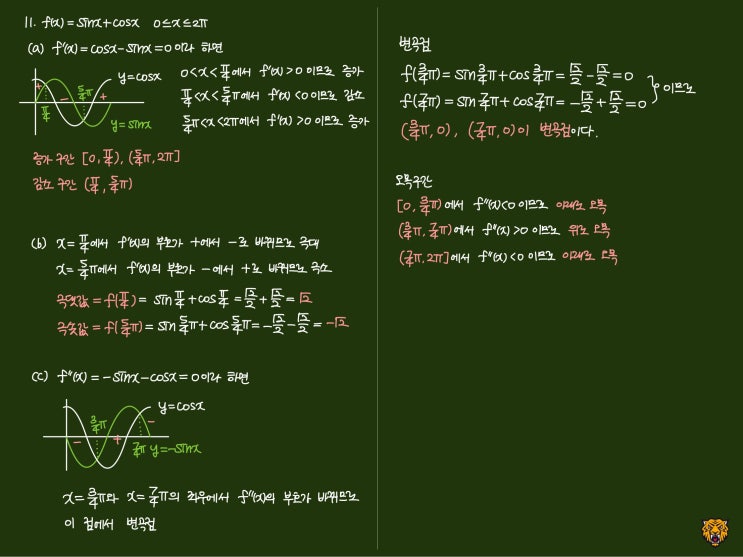 11. f(x) = sinx + cosx 0≤x≤2π
(a) f'(x) = cosx - sinx = 0이라 하면
y=cosx
y=sinx
π/4
5/4π
+
-
+
0<x<π/4에서 f'(x)>0이므로 증가
π/4<x<5/4π에서 f'(x)<0이므로 감소
5/4π<x<2π에서 f'(x)>0이므로 증가
증가 구간 [0, π/4), (5/4π, 2π]
감소 구간 (π/4, 5/4π)
(b) x=π/4에서 f'(x)의 부호가 +에서 -로 바뀌므로 극대
x=5/4π에서 f'(x)의 부호가 -에서 +로 바뀌므로 극소
극댓값 = f(π/4) = sinπ/4 + cosπ/4 = √2/2 + √2/2 = √2
극솟값 = f(5/4π) = sin5/4π + cos5/4π = -√2/2 - √2/2 = -√2
(c) f''(x) = -sinx - cosx = 0이라 하면
y=cosx
3/4π
-
+
-
7/4π y=-sinx
x=3/4π와 x=7/4π의 좌우에서 f''(x)의 부호가 바뀌므로
이 점에서 변곡점
변곡점
f(3/4π) = sin3/4π + cos3/4π = √2/2 - √2/2 = 0
f(7/4π) = sin7/4π + cos7/4π = -√2/2 + √2/2 = 0
이므로
(3/4π, 0), (7/4π, 0)이 변곡점이다.
오목구간
[0, 3/4π)에서 f''(x)<0이므로 아래로 오목
(3/4π, 7/4π)에서 f''(x)>0이므로 위로 오목
(7/4π, 2π]에서 f''(x)<0이므로 아래로 오목